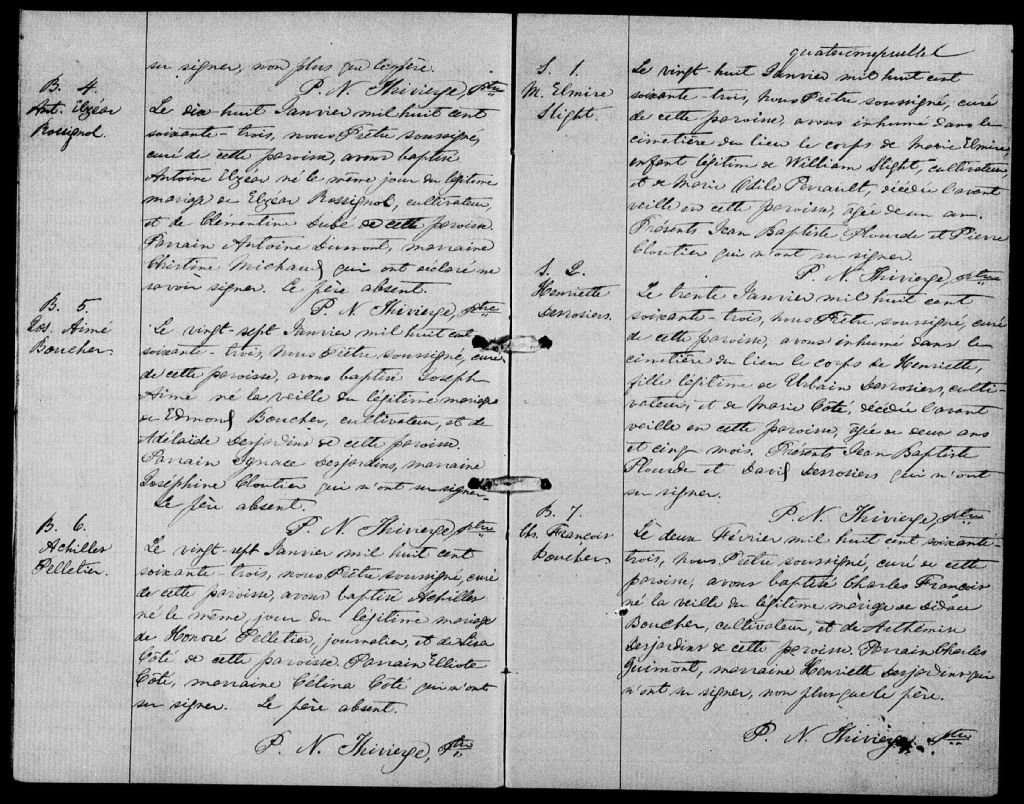 su signer, non plus que le père.
P. N. Thivierge, Ptre
B. 4.
Ant. Elzéar
Rossignol.
Le dix huit Janvier mil huit cent
soixante-trois, nous Prêtre soussigné,
curé de cette paroisse, avons baptisé
Antoine Elzéar né le même jour du légitime
mariage de Elzéar Rossignol, cultivateur,
et de Clémentine Dubé de cette paroisse.
Parrain Antoine Dumont, marraine
Christine Michaud qui ont déclaré ne
savoir signer. Le père absent.
P. N. Thivierge, Ptre
B. 5.
Jos. Aimé
Boucher.
Le vingt-sept Janvier mil huit cent
soixante-trois, nous Prêtre soussigné, curé
de cette paroisse, avons baptisé Joseph
Aimé né la veille du légitime mariage
de Edmond Boucher, cultivateur, et de
Adélaide Desjardins de cette paroisse.
Parrain Ignace Desjardins, marraine
Josephine Cloutier qui n'ont su signer.
Le père absent.
P. N. Thivierge, Ptre
B. 6.
Achilles
Pelletier.
Le vingt-sept Janvier mil huit cent
soixante-trois, nous Prêtre soussigné, curé
de cette paroisse, avons baptisé Achilles
né le même jour du légitime mariage
de Honoré Pelletier, journalier, et de Lisa
Côté de cette paroisse. Parrain Elliote
Côté, marraine Célina Côté qui n'ont
su signer. Le père absent.
P. N. Thivierge, Ptre
S. 1.
M. Elmire
Slight.
Le vingt-huit Janvier mil huit cent
soixante-trois, nous Prêtre soussigné, curé
de cette paroisse, avons inhumé dans le
cimetière du lieu le corps de Marie Elmire,
enfant légitime de William Slight, cultivateur,
et de Marie Odile Perrault, décédée l'avant
veille en cette paroisse, âgée de un an.
Présents Jean Baptiste Plourde et Pierre
Cloutier qui n'ont su signer.
P. N. Thivierge, Ptre
S. 2.
Henriette
Desrosiers.
Le trente Janvier mil huit cent
soixante-trois, nous Prêtre soussigné, curé
de cette paroisse, avons inhumé dans le
cimetière du lieu le corps de Henriette,
fille légitime de Urbain Desrosiers, culti-
vateur, et de Marie Côté, décédée l'avant
veille en cette paroisse, âgée de deux ans
et cinq mois. Présents Jean Baptiste
Plourde et David Desrosiers qui n'ont
su signer.
P. N. Thivierge, Ptre
B. 7.
Chs. François
Boucher.
Le deux Février mil huit cent soixante-
trois, nous Prêtre soussigné, curé de cette
paroisse, avons baptisé Charles François
né la veille du légitime mariage de
Boucher, cultivateur, et de Arthémise
Desjardins de cette paroisse. Parrain Charles
Guimont, marraine Henriette Desjardins qui
n'ont su signer, non plus que le père.
P. N. Thivierge, Ptre